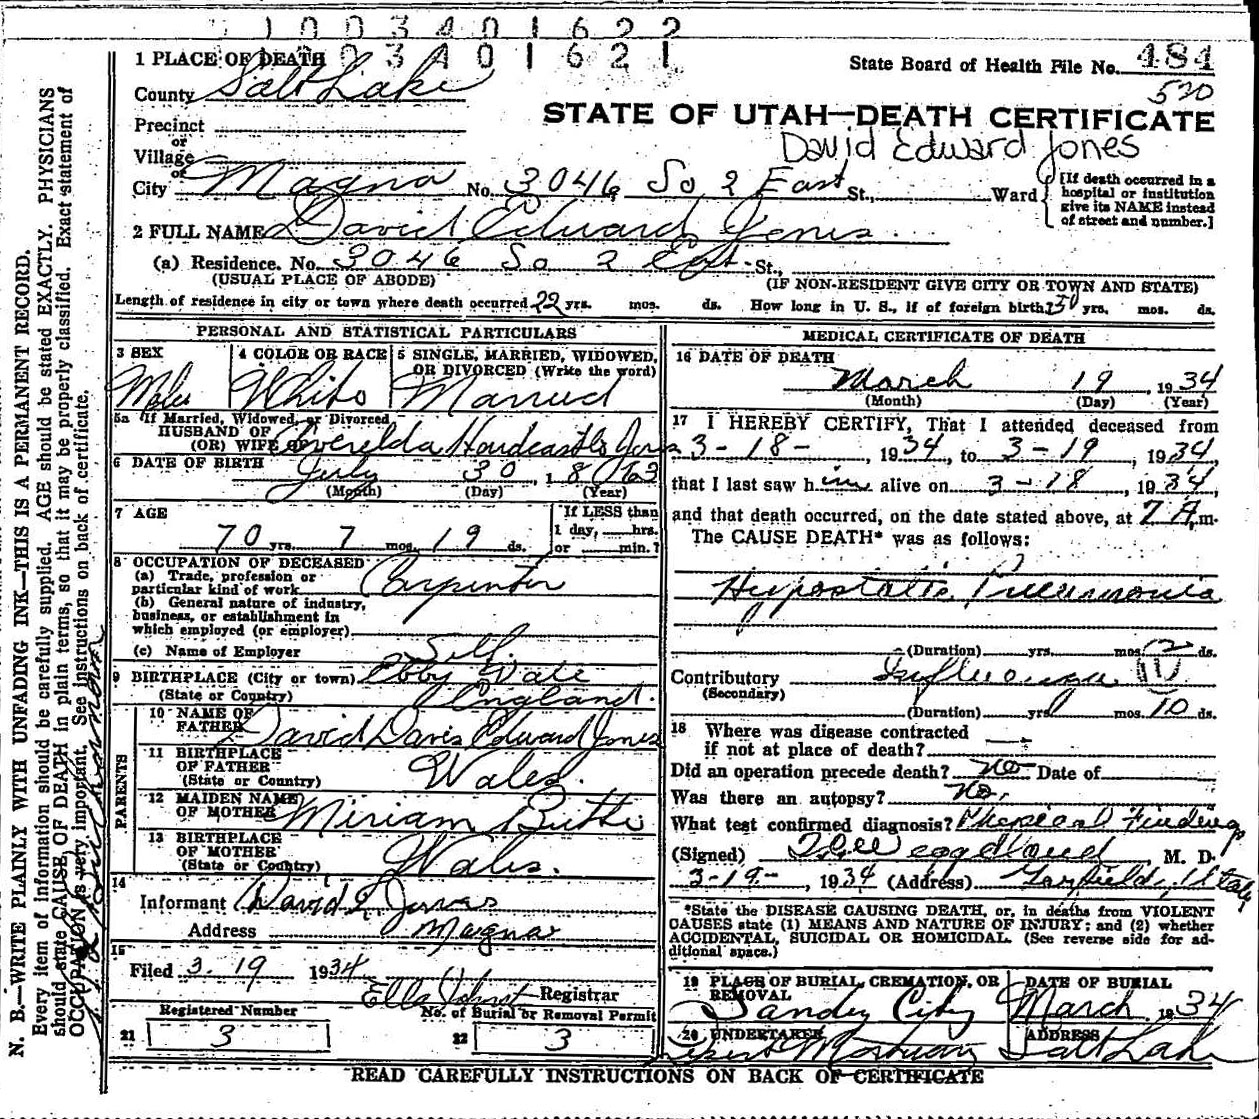 1 0 0 3 4 0 1 6 2 2
0 3 4 0 1 6 2 1
1 PLACE OF DEATH
State Board of Health File No. 484
County Salt Lake
520
STATE OF UTAH—DEATH CERTIFICATE
Precinct
or
Village
David Edward Jones
or
City Magna No. 3046 So 2 East St., Ward
[If death occurred in a hospital or institution give its NAME instead of street and number.]
2 FULL NAME David Edward Jones.
(a) Residence. No. 3046 So 2 East St.,
(USUAL PLACE OF ABODE) (IF NON-RESIDENT GIVE CITY OR TOWN AND STATE)
Length of residence in city or town where death occurred 22 yrs. mos. ds. How long in U. S., if of foreign birth? 50 yrs. mos. ds.
PERSONAL AND STATISTICAL PARTICULARS
3 SEX Male
4 COLOR OR RACE White
5 SINGLE, MARRIED, WIDOWED, OR DIVORCED (Write the word) Married
5a If Married, Widowed, or Divorced
HUSBAND OF
(OR) WIFE OF Averelda Hardcastle Jones
6 DATE OF BIRTH July 30, 1863
(Month) (Day) (Year)
7 AGE
70 yrs. 7 mos. 19 ds.
If LESS than 1 day, hrs. or min.?
8 OCCUPATION OF DECEASED
(a) Trade, profession or particular kind of work Carpenter
(b) General nature of industry, business, or establishment in which employed (or employer)
(c) Name of Employer Self.
9 BIRTHPLACE (City or town) Ebby Vale
(State or Country) England.
PARENTS
10 NAME OF FATHER David Davis Edward Jones
11 BIRTHPLACE OF FATHER (State or Country) Wales.
12 MAIDEN NAME OF MOTHER Miriam
13 BIRTHPLACE OF MOTHER (State or Country) Wales.
14
Informant David L Jones
Address Magna
15
Filed 3. 19 1934
Ella Registrar
Registered Number No. of Burial or Removal Permit
21 3 22 3
MEDICAL CERTIFICATE OF DEATH
16 DATE OF DEATH
March 19 1934
(Month) (Day) (Year)
17 I HEREBY CERTIFY, That I attended deceased from
3-18-, 1934, to 3-19, 1934,
that I last saw him alive on 3-18, 1934,
and that death occurred, on the date stated above, at 7 A.m.
The CAUSE DEATH* was as follows:
Hypostatic Pneumonia
(Duration) yrs. mos. 2 ds.
Contributory Influenza (11)
(Secondary)
(Duration) yrs. mos. 10 ds.
18 Where was disease contracted
if not at place of death?
Did an operation precede death? no Date of
Was there an autopsy? No.
What test confirmed diagnosis? Physical Findings
(Signed) M. D.
3-19-, 1934 (Address) Garfield, Utah,
*State the DISEASE CAUSING DEATH, or, in deaths from VIOLENT CAUSES state (1) MEANS AND NATURE OF INJURY; and (2) whether ACCIDENTAL, SUICIDAL OR HOMICIDAL. (See reverse side for additional space.)
19 PLACE OF BURIAL, CREMATION, OR REMOVAL Sandy City
DATE OF BURIAL March 1934
20 UNDERTAKER Mortuary
ADDRESS Salt Lake
READ CAREFULLY INSTRUCTIONS ON BACK OF CERTIFICATE
N. B.—WRITE PLAINLY WITH UNFADING INK—THIS IS A PERMANENT RECORD.
Every item of information should be carefully supplied. AGE should be stated EXACTLY. PHYSICIANS
should state CAUSE OF DEATH in plain terms, so that it may be properly classified. Exact statement of
OCCUPATION is very important. See instructions on back of certificate.